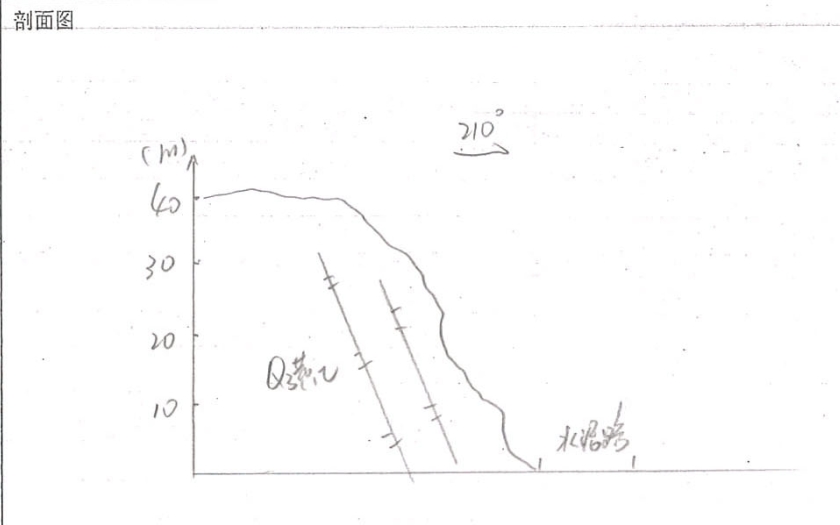 剖面图
210°
(m)
40
30
20
10
Q₃黄土
水泥路